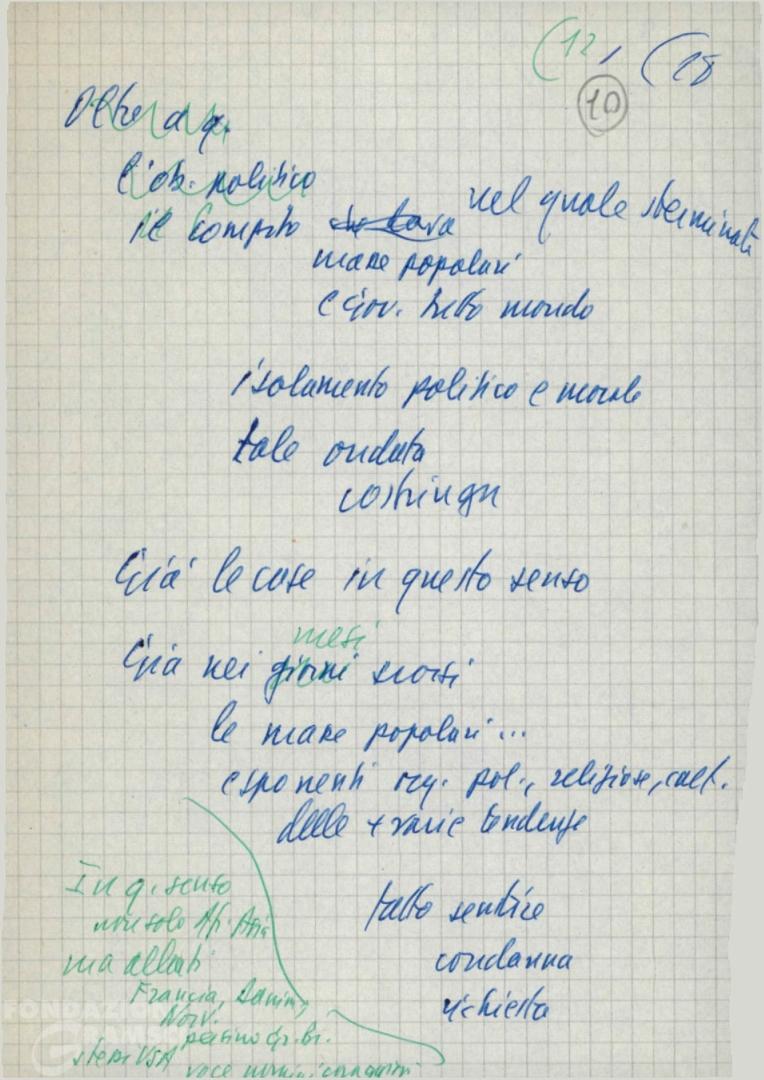 (12, (18
10
Oltre a q.
l'ob. politico
il compito nel quale sterminate
masse popolari
e giov. tutto mondo
isolamento politico e morale
tale ondata
costringa
Già le cose in questo senso
mesi
Già nei giorni scorsi
le masse popolari...
esponenti org. pol., religiose, cult.
delle + varie tendenze
In q. senso
non solo Af. Asia
ma alleati
Francia, Danim,
Norv.
persino Gr. Br.
stessi USA
voce uomini
fatto sentire
condanna
richiesta
FONDAZIONE